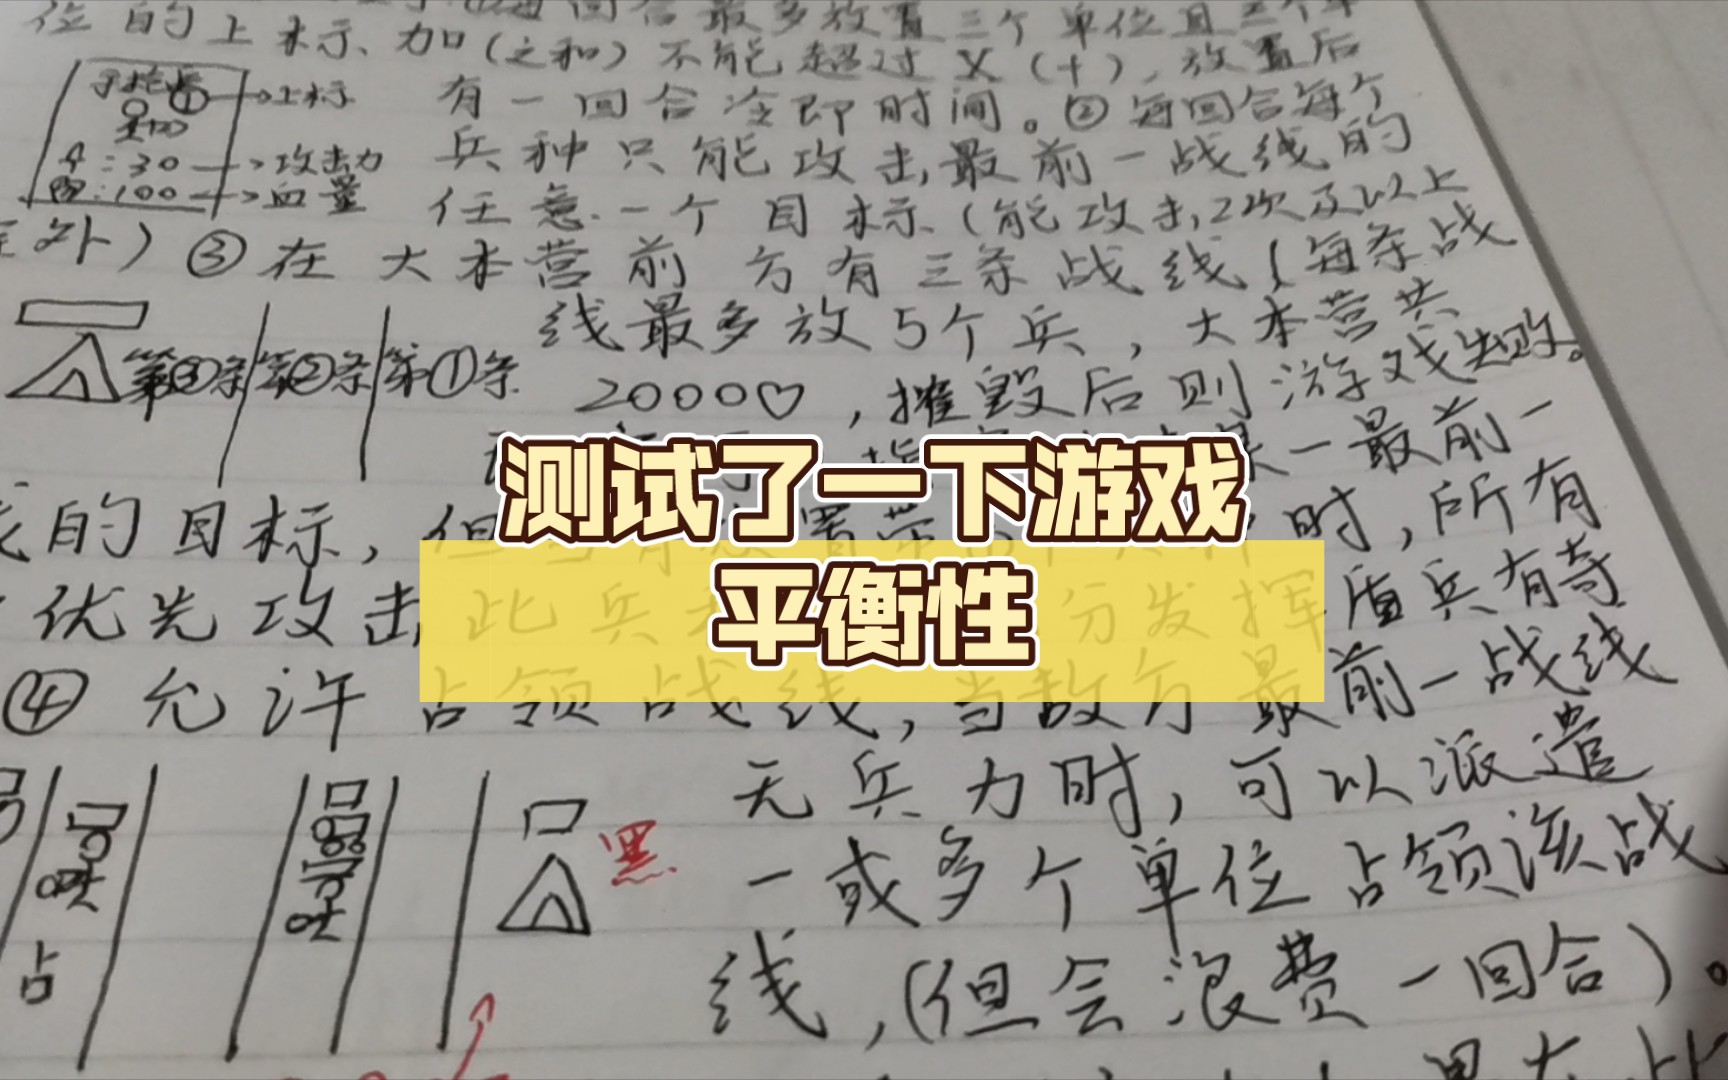 位的上标、加(之和)不能超过X(十),放置后
①→上标 有一回合冷即时间。②每回合每个
:30→攻击力 兵种只能攻击,最前一战线的
:100→血量 任意一个目标(能攻击,2次及以上
外)③在大本营前方有三条战线(每条战
线最多放5个兵,大本营共
第③条 第②条 第①条 2000♡,摧毁后则游戏失败。
一最前一
的目标,但 时,所有
测试了一下游戏
平衡性
优先攻击此兵 分发挥 盾兵有奇
④允许占领战线,当敌方最前一战线
无兵力时,可以派遣
黑
一或多个单位占领该战
占
线,(但会浪费一回合)。